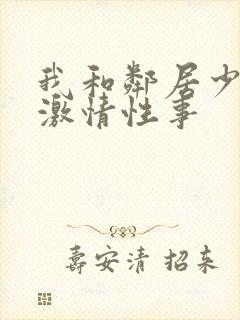 我和鄰居少
激情性事
壽安清 招来